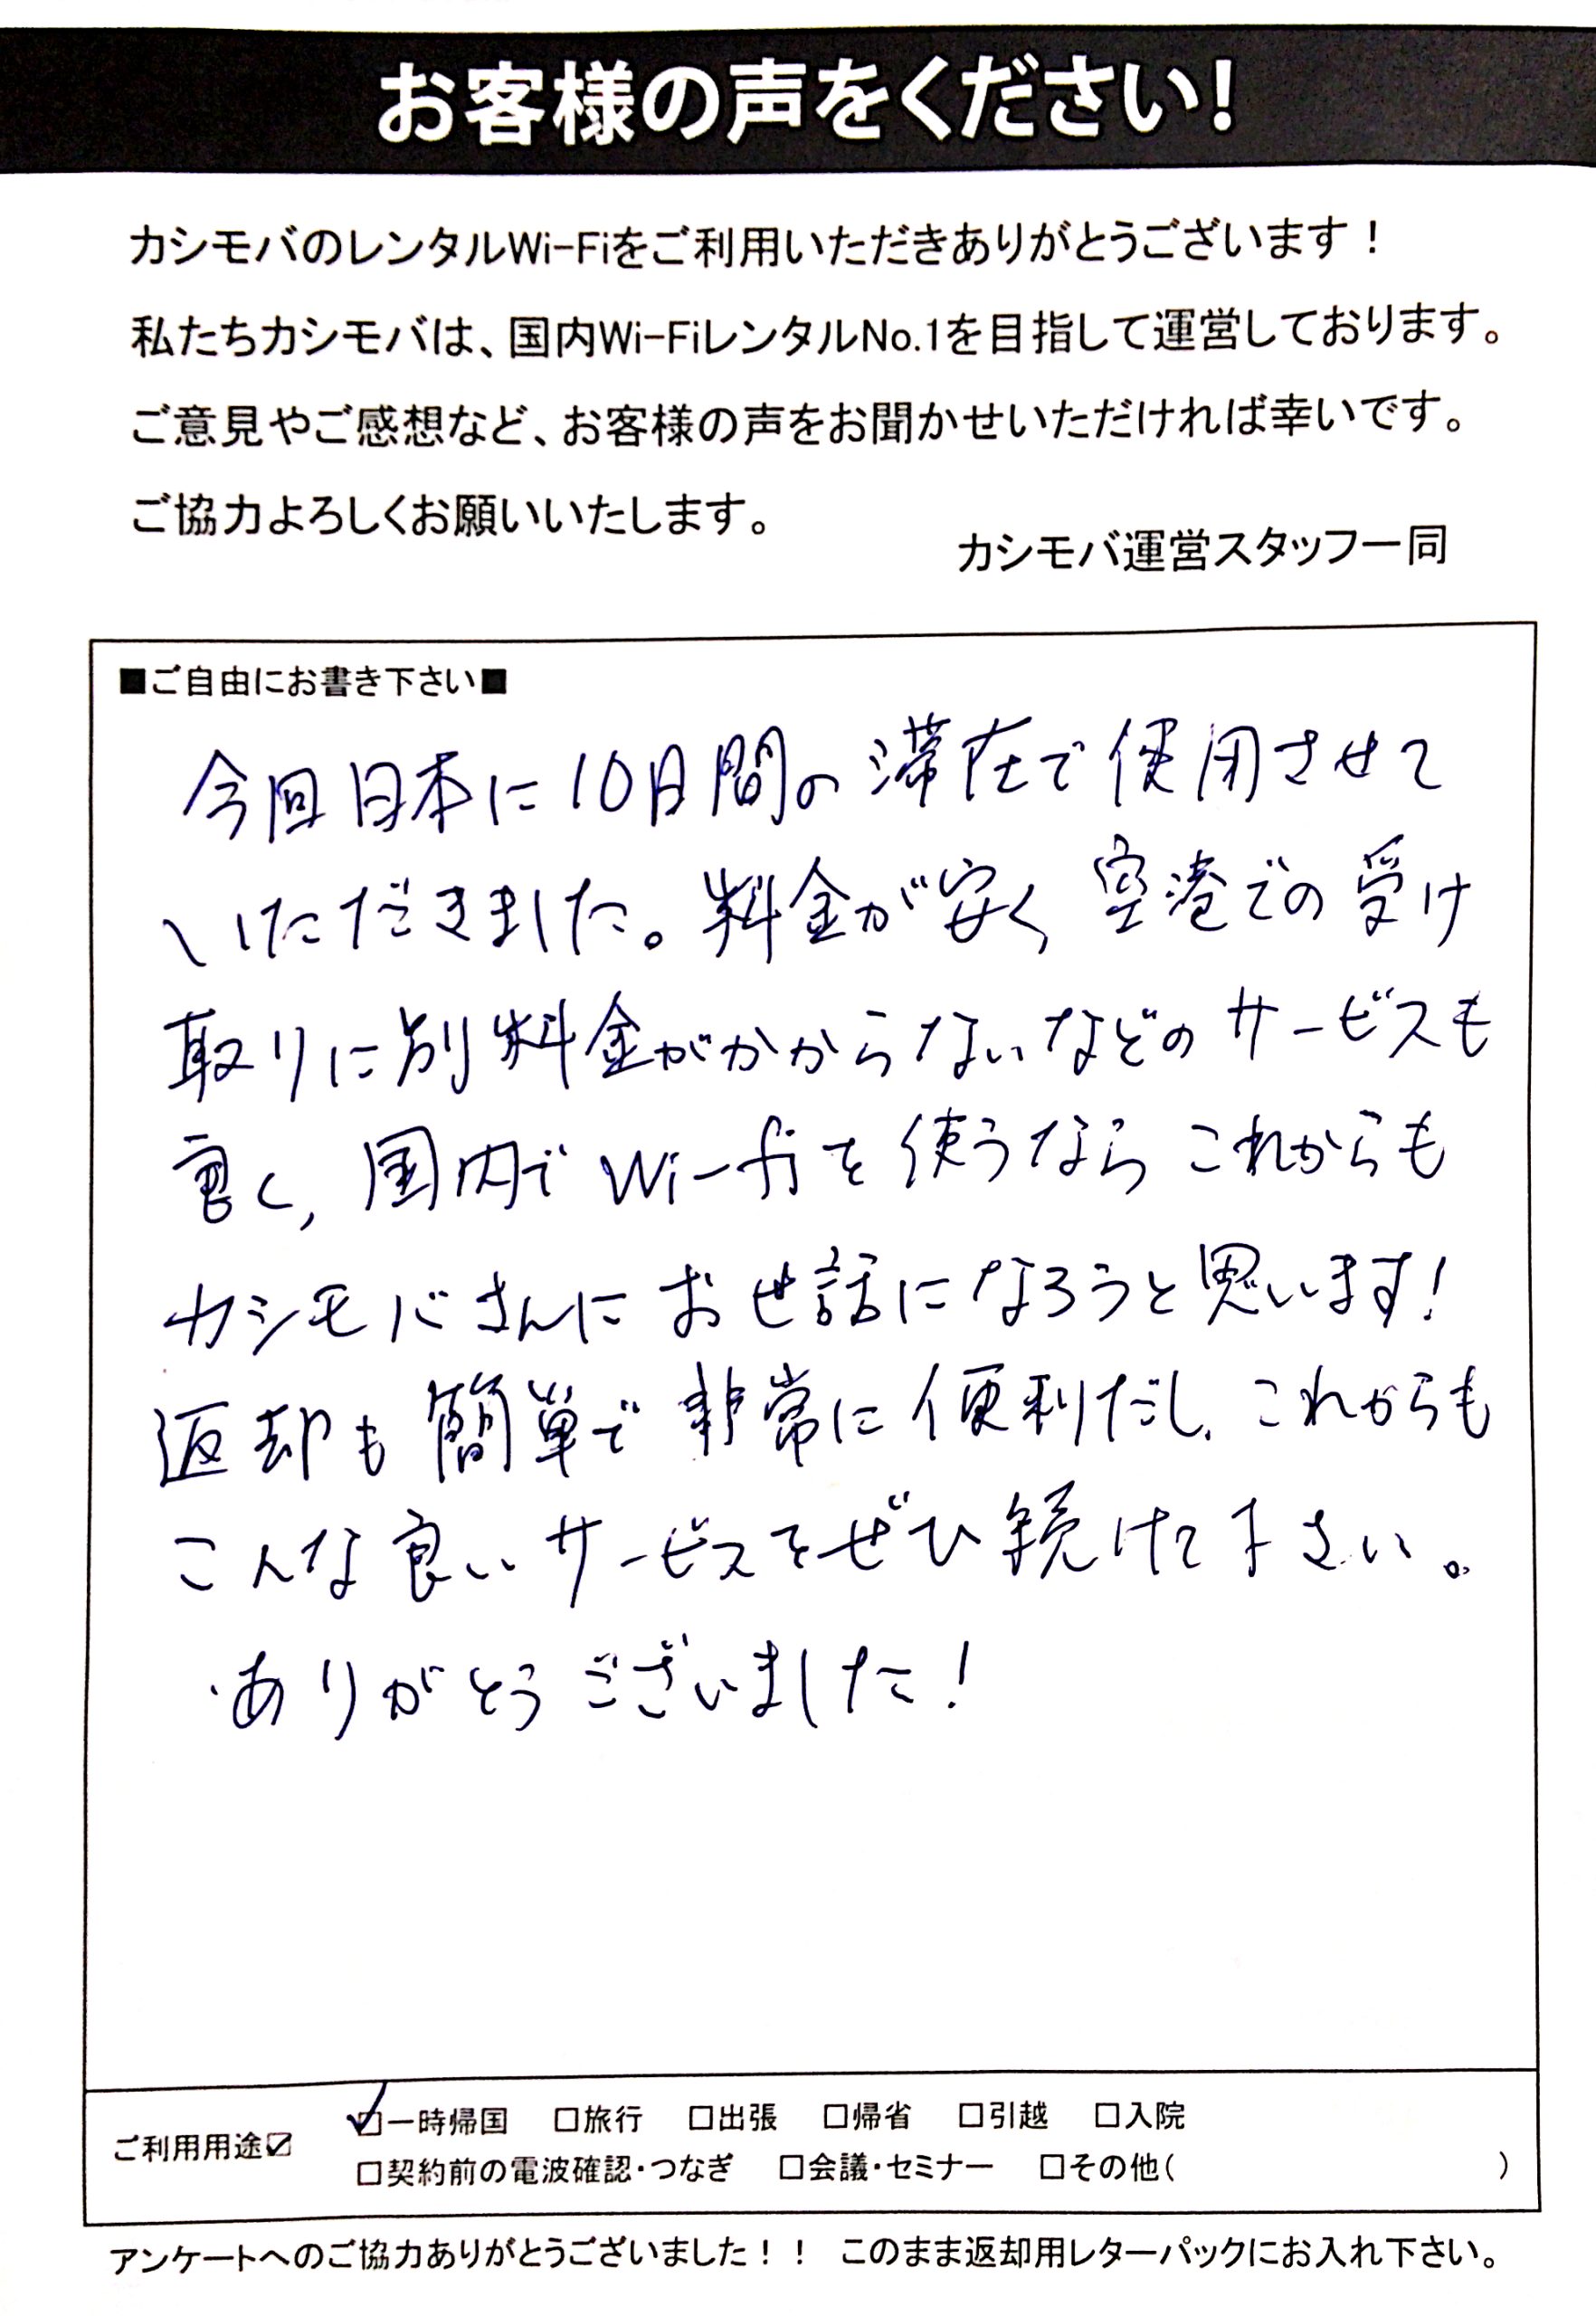 お客様の声をください!
カシモバのレンタルWi-Fiをご利用いただきありがとうございます！
私たちカシモバは、国内Wi-FiレンタルNo.1を目指して運営しております。
ご意見やご感想など、お客様の声をお聞かせいただければ幸いです。
ご協力よろしくお願いいたします。
カシモバ運営スタッフ一同
■ご自由にお書き下さい■
今回日本に10日間の滞在で使用させて
いただきました。料金が安く、空港での受け
取りに別料金がかからないなどのサービスも
良く、国内でWi-fiを使うならこれからも
カシモバさんにお世話になろうと思います！
返却も簡単で非常に便利だし、これからも
こんな良いサービスをぜひ続けて下さい。
ありがとうございました！
ご利用用途☑ ☑一時帰国 □旅行 □出張 □帰省 □引越 □入院
□契約前の電波確認・つなぎ □会議・セミナー □その他( )
アンケートへのご協力ありがとうございました！！ このまま返却用レターパックにお入れ下さい。